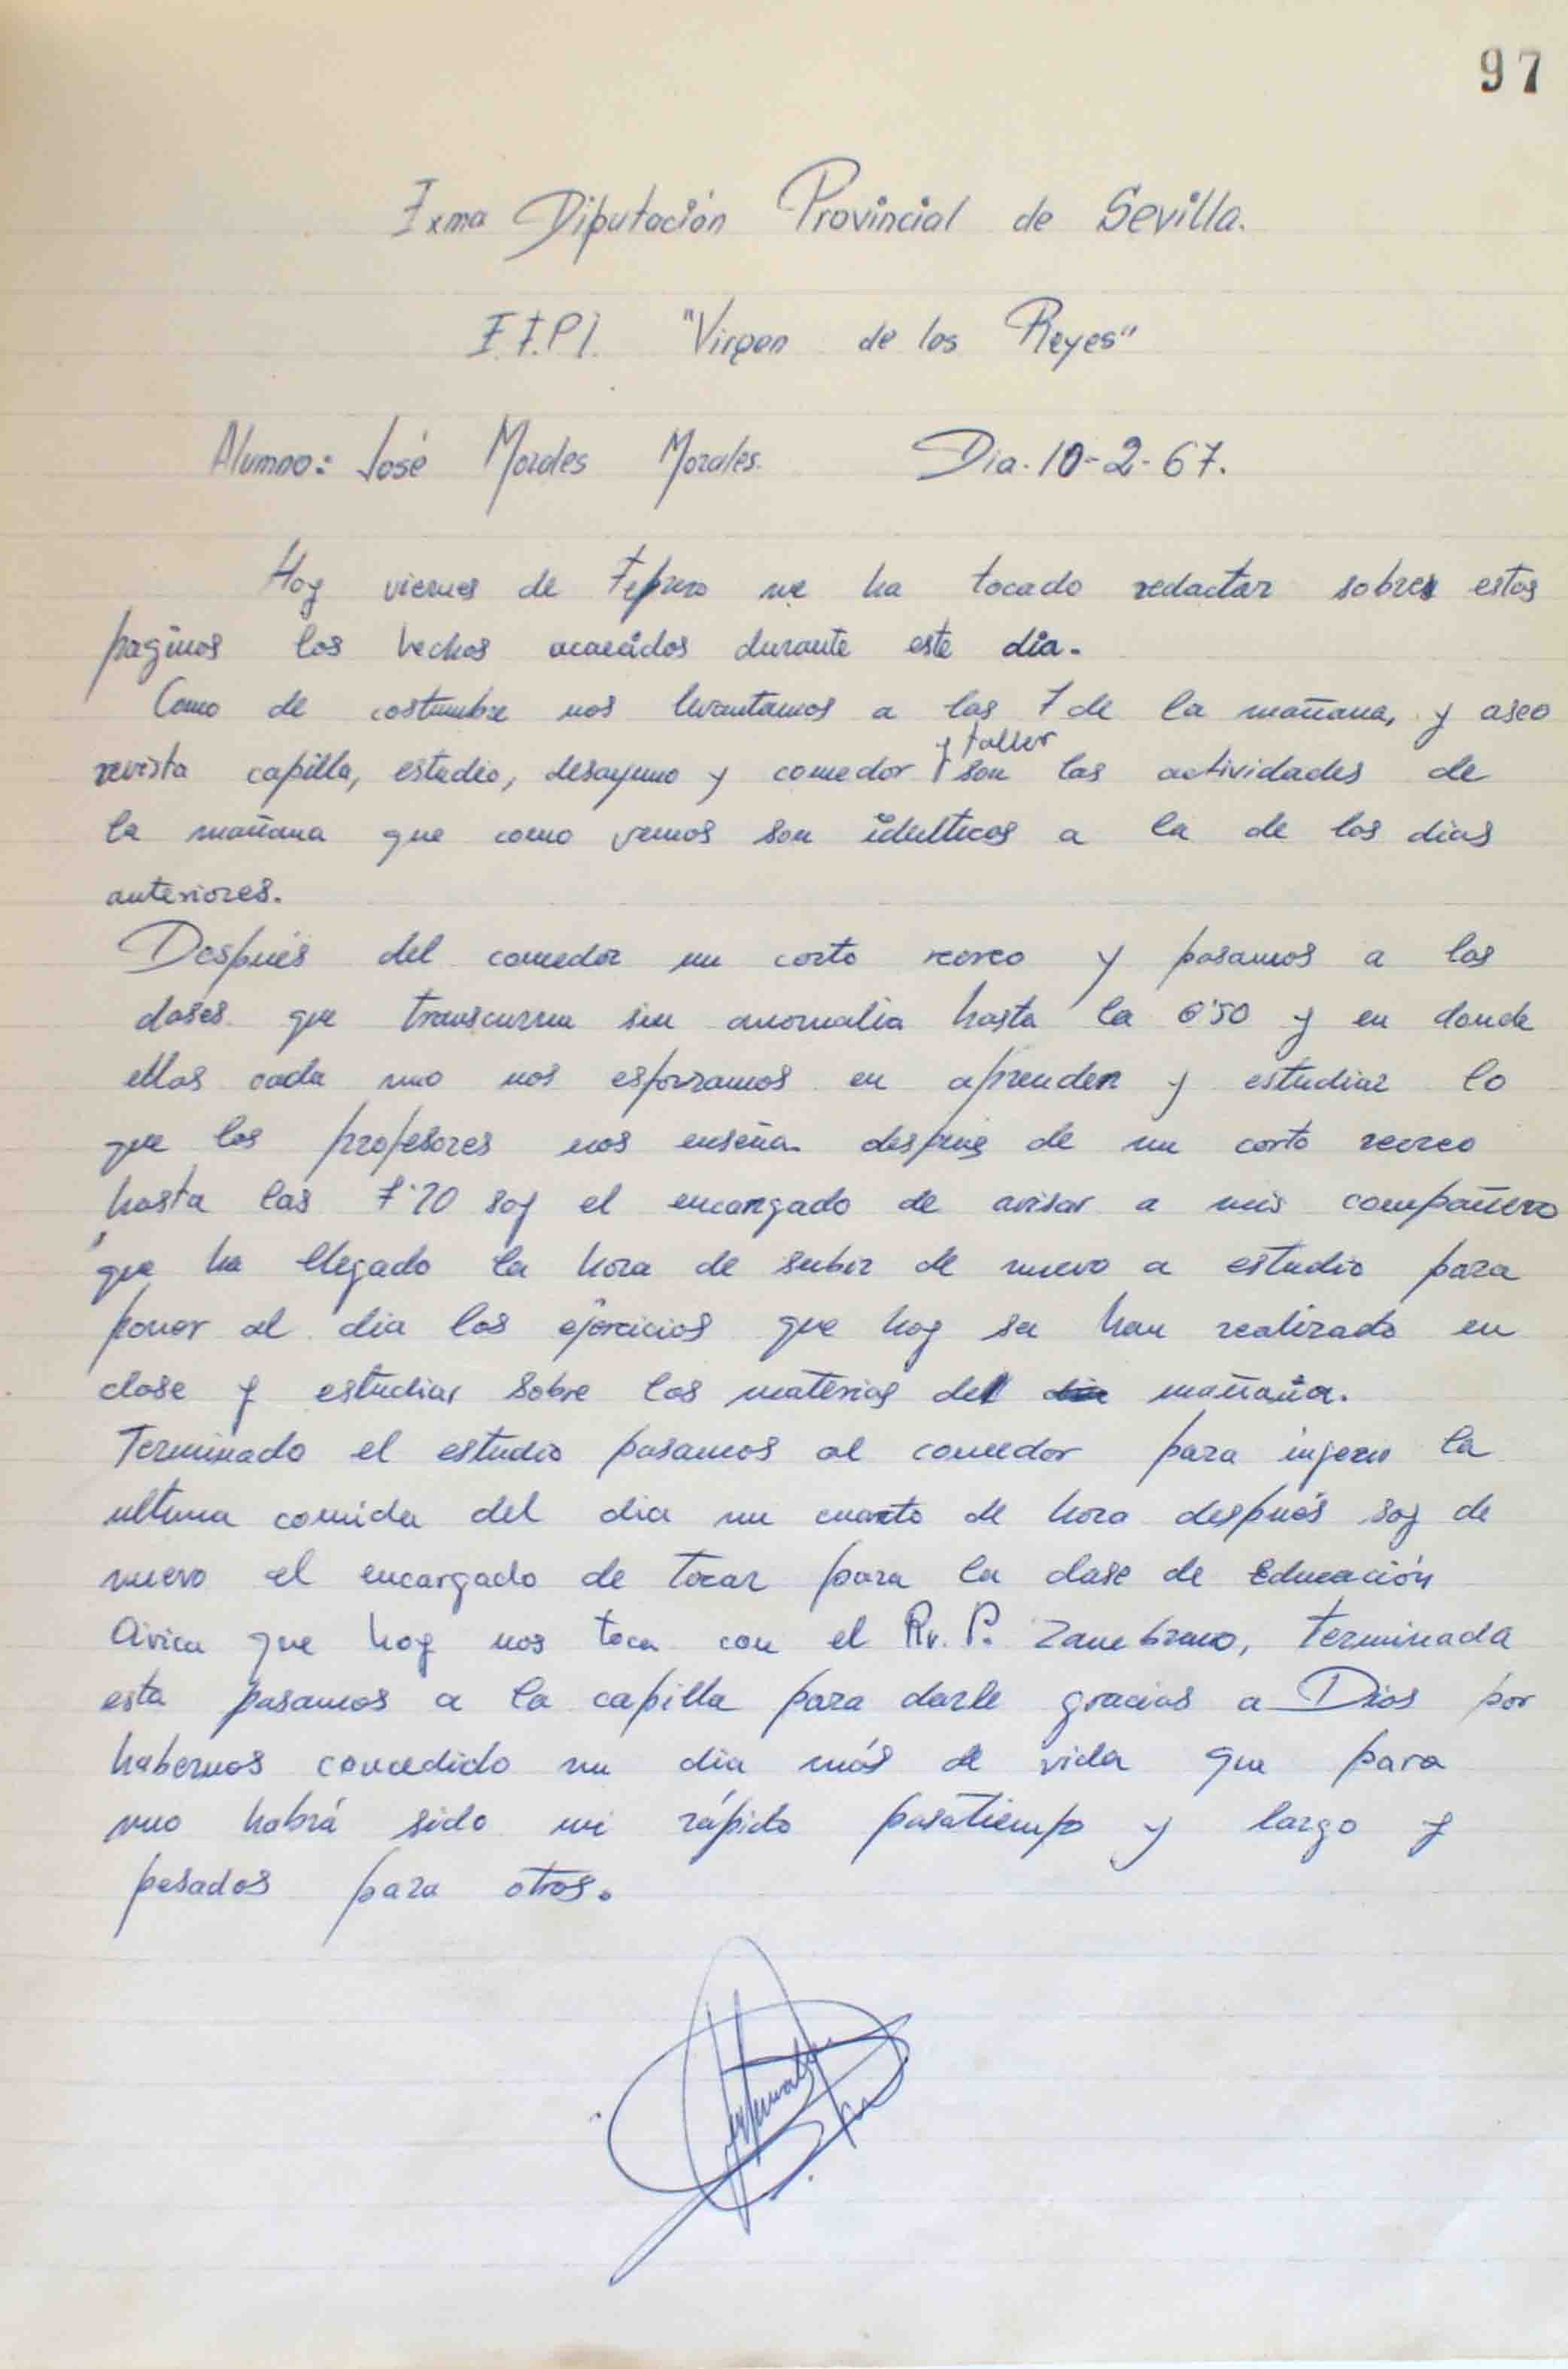 97
Exma Diputación Provincial de Sevilla.
E.F.P.I. "Virgen de los Reyes"
Alumno: José Morales Morales. Dia. 10-2-67.
Hoy viernes de Febrero me ha tocado redactar sobre estas
paginas los hechos acaecidos durante este dia.
Como de costumbre nos levantamos a las 7 de la mañana, y aseo
revista capilla, estudio, desayuno y comedor y taller son las actividades de
la mañana que como vemos son identicas a la de los dias
anteriores.
Después del comedor un corto recreo y pasamos a las
clases que transcurren sin anomalia hasta la 6'50 y en donde
ellas cada uno nos esforzamos en aprender y estudiar lo
que los profesores nos enseña. despues de un corto recreo
hasta las 7'20 soy el encargado de avisar a mis compañero
que ha llegado la hora de subir de nuevo a estudio para
poner al dia los ejercicios que hoy se han realizado en
clase y estudiar sobre las materias del mañana.
Terminado el estudio pasamos al comedor para la
ultima comida del dia un cuarto de hora después soy de
nuevo el encargado de tocar para la clase de Educación
Civica que hoy nos toca con el Rv. P. Zambrano, Terminada
esta pasamos a la capilla para darle gracias a Dios por
habernos concedido un dia más de vida que para
uno habrá sido un rápido pasatiempo y largo y
pesados para otros.